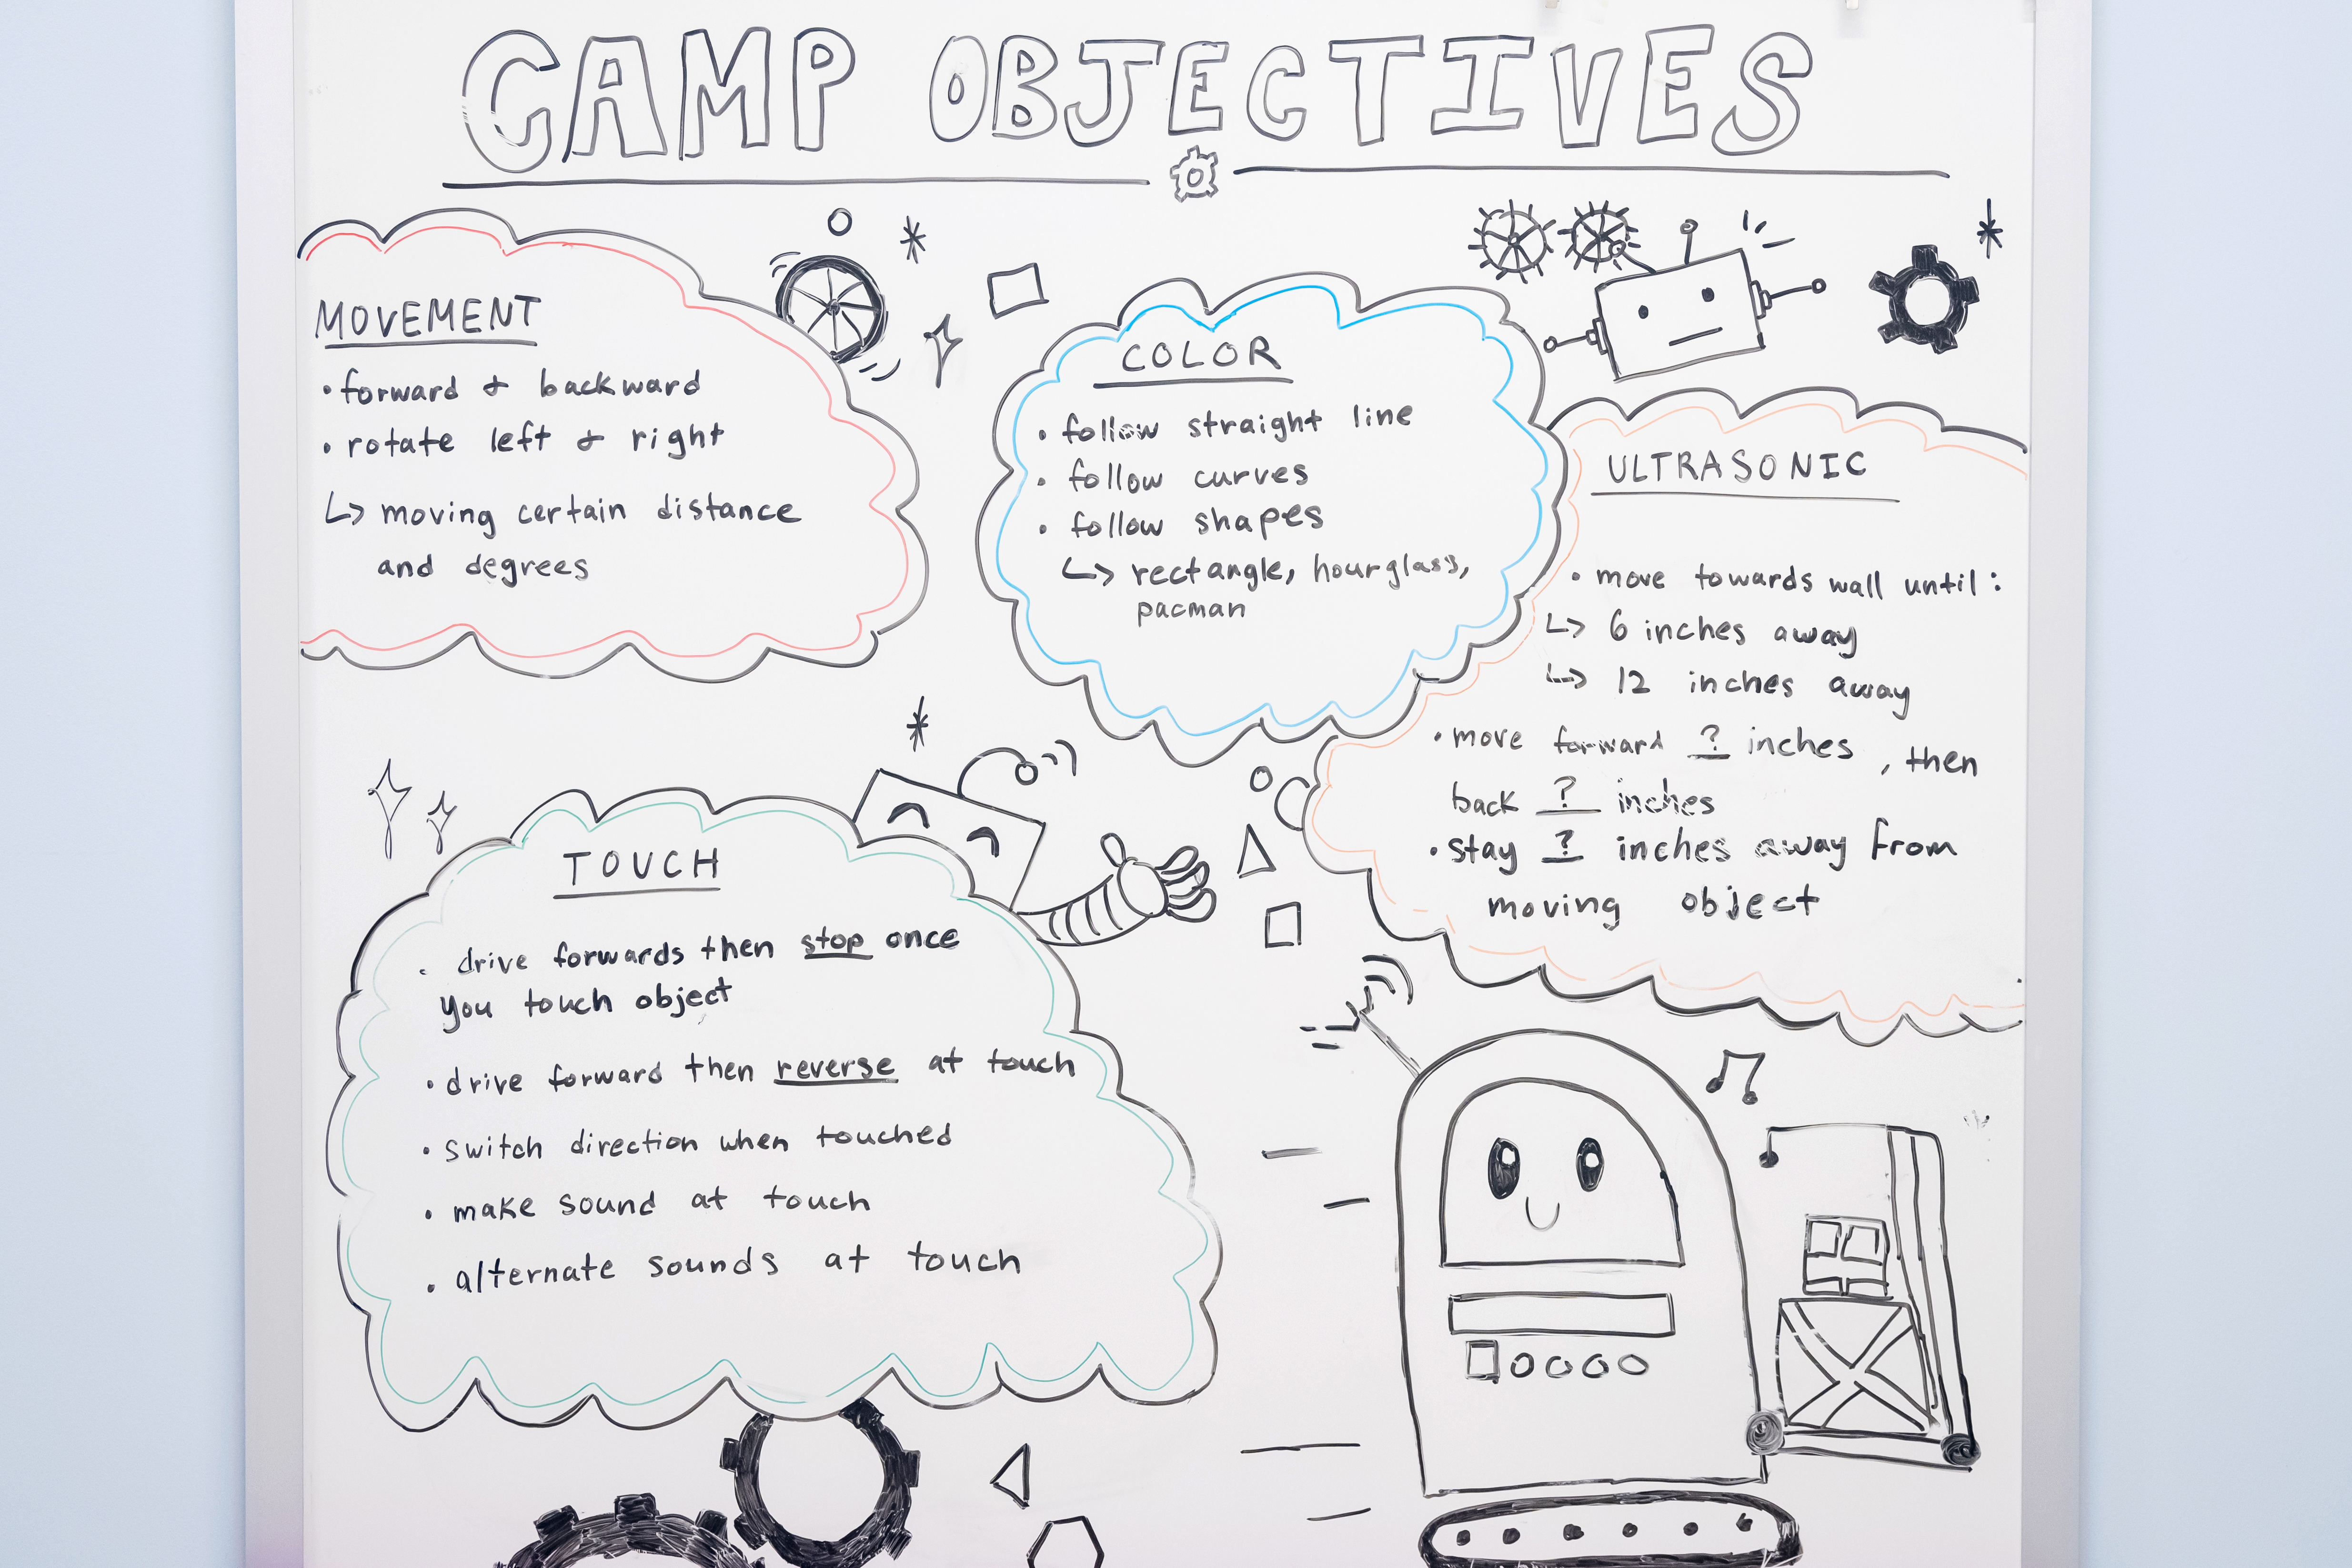 CAMP OBJECTIVES
MOVEMENT
• forward & backward
• rotate left & right
↳ moving certain distance
and degrees
COLOR
• follow straight line
• follow curves
• follow shapes
↳ rectangle, hourglass,
pacman
ULTRASONIC
• move towards wall until:
↳ 6 inches away
↳ 12 inches away
• move forward ? inches, then
back ? inches
• stay ? inches away from
moving object
TOUCH
• drive forwards then stop once
you touch object
• drive forward then reverse at touch
• switch direction when touched
• make sound at touch
• alternate sounds at touch